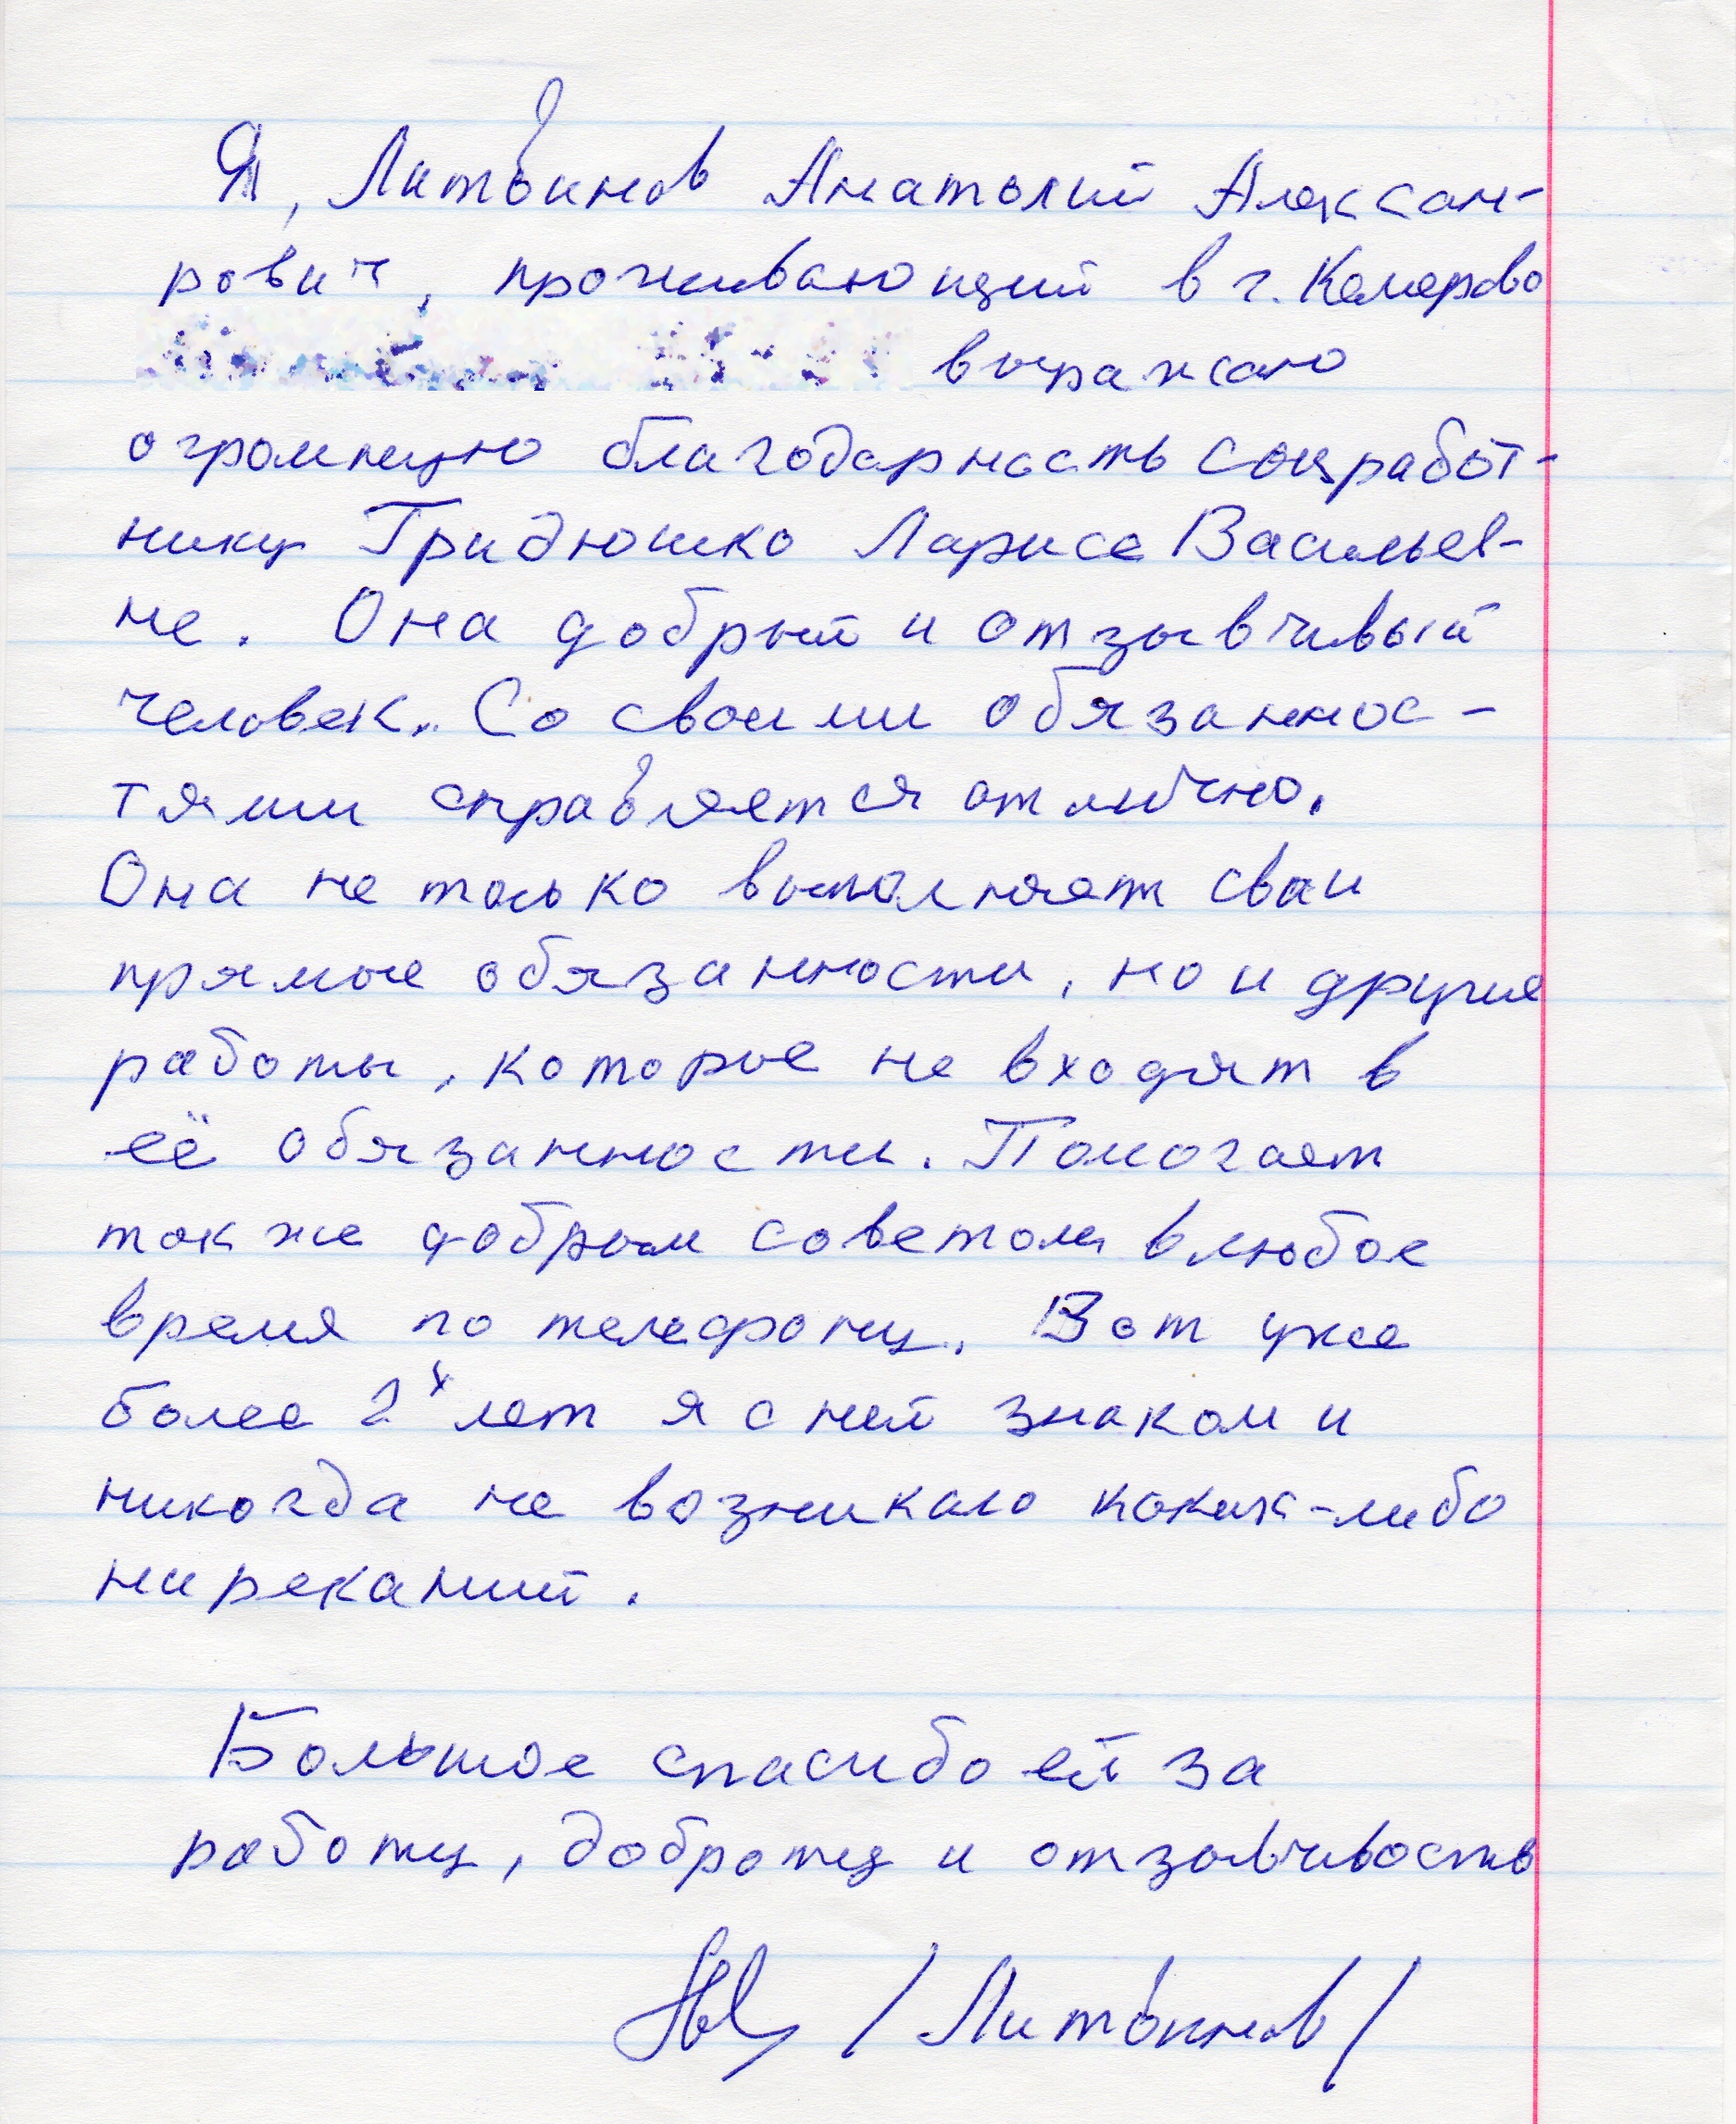 Я, Литвинов Анатолий Алексан-
рович, проживающий в г. Кемерово
выражаю
огромную благодарность соцработ-
нику Гридюшко Ларисе Васильев-
не. Она добрый и отзывчивый
человек. Со своими обязаннос-
тями справляется отлично.
Она не только выполняет свои
прямые обязанности, но и другие
работы, которые не входят в
её обязанности. Помогает
так же добрым советом в любое
время по телефону. Вот уже
более 2х лет я с ней знаком и
никогда не возникало каких-либо
ниреканий.
Большое спасибо ей за
работу, доброту и отзывчивость
/Литвинов/